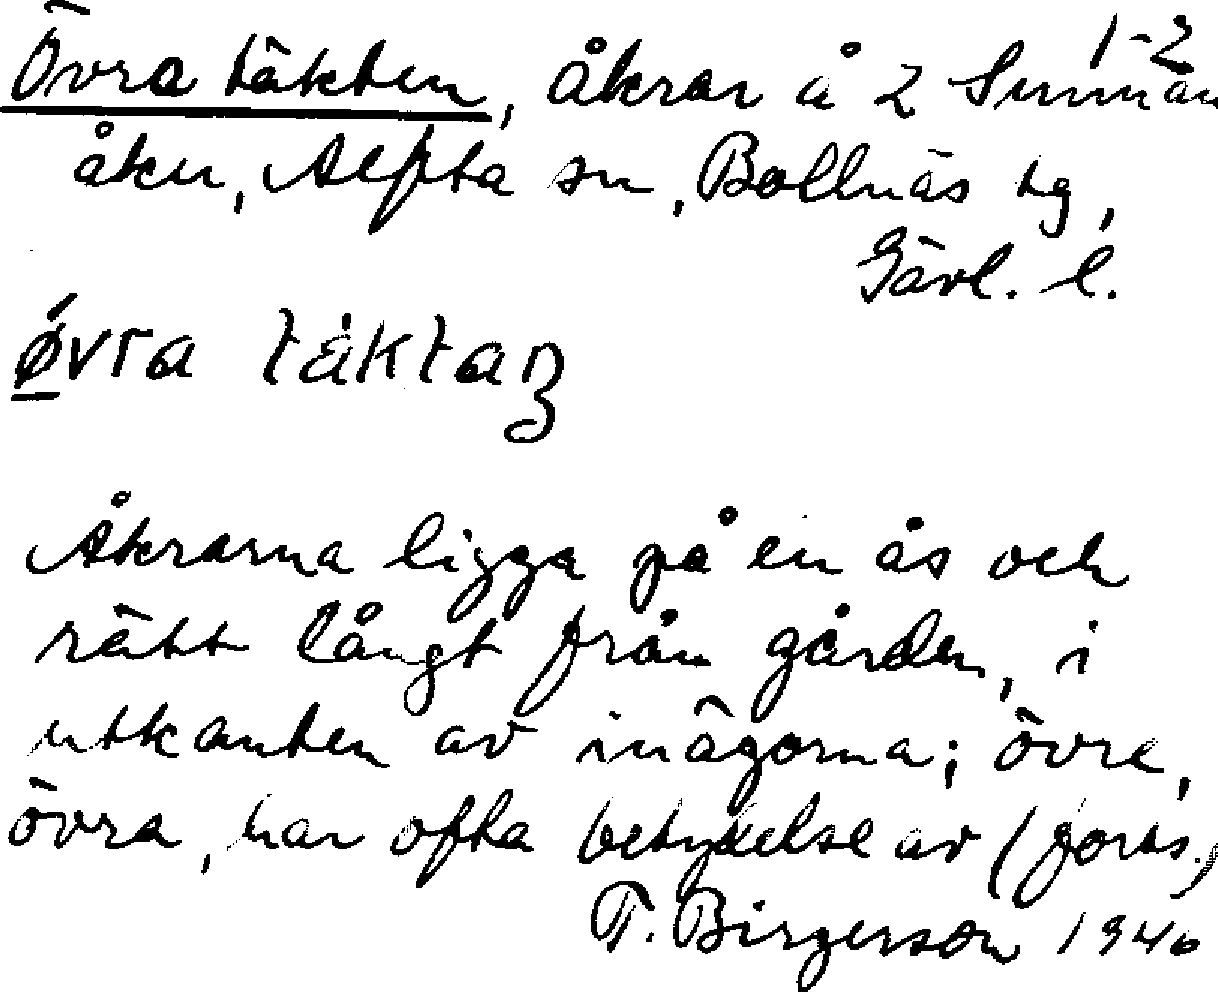 1-2
Övra täkten, åkrar å 2 Sunnan
åker, Alfta sn, Bollnäs tg,
Gävl. l.
øvra täktaʒ
Åkrarna ligga på en ås och
rätt långt från gården, i
utkanten av inägorna; övre,
övra, har ofta betydelse av (forts.)
T. Birgerson 1946